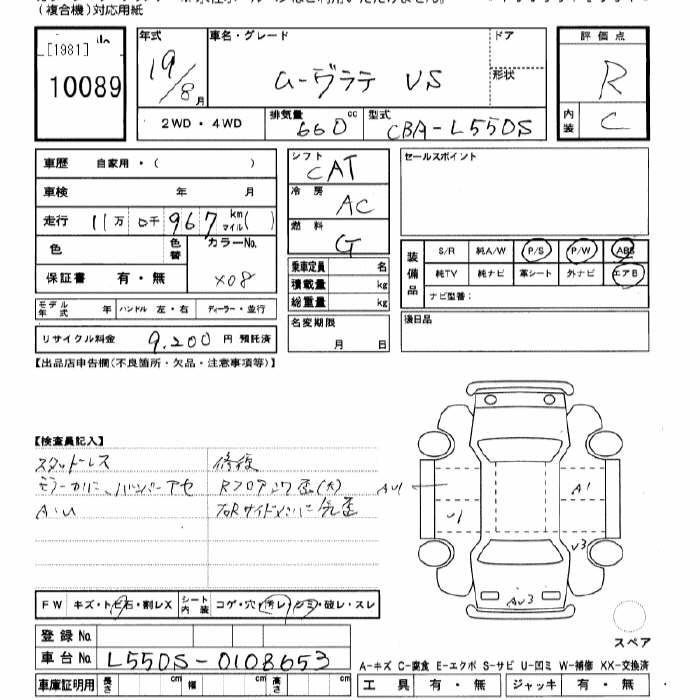 (複合機)対応用紙
[1981]
10089
年式
19/8月
車名・グレード
ムーヴラテ VS
ドア
形状
2WD・4WD
排気量 660 cc
型式 CBA-L550S
評価点
R
内装
C
車歴 自家用・( )
車検 年 月
走行 11万 0千 967 km マイル ( )
色
色替
カラーNo.
X08
保証書 有・無
モデル年式 年 ハンドル 左・右 ディーラー・並行
リサイクル料金 9,200 円 預託済
シフト
CAT
冷房
AC
燃料
G
乗車定員 名
積載量 kg
総重量 kg
名変期限
月 日
セールスポイント
装備品
S/R 純A/W P/S P/W ABS
純TV 純ナビ 革シート 外ナビ エアB
ナビ型番:
後日品
【出品店申告欄(不良箇所・欠品・注意事項等)】
【検査員記入】
スタッドレス
A・U
修復
AU1
A1
U1
U3
AU3
スペア
FW キズ・トビ石・割レX
シート内装 コゲ・穴・汚レ・シミ・破レ・スレ
登録No.
車台No. L550S-0108653
車庫証明用 長さ cm 幅 cm 高さ cm
A-キズ C-腐食 E-エクボ S-サビ U-凹ミ W-補修 XX-交換済
工具 有・無 ジャッキ 有・無